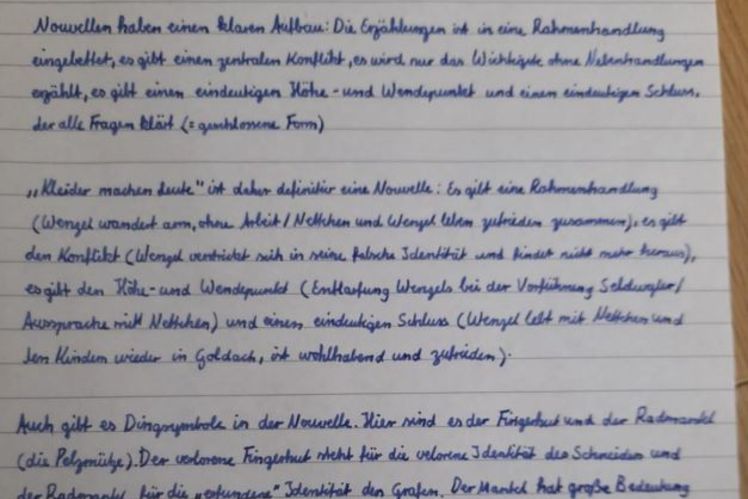 Novellen haben einen klaren Aufbau: Die Erzählungen ist in eine Rahmenhandlung
eingebettet, es gibt einen zentralen Konflikt, es wird nur das Wichtigste ohne Nebenhandlungen
erzählt, es gibt einen eindeutigen Höhe- und Wendepunkt und einen eindeutigen Schluss,
der alle Fragen klärt (= geschlossene Form)
„Kleider machen Leute" ist daher definitiv eine Novelle: Es gibt eine Rahmenhandlung
(Wenzel wandert arm, ohne Arbeit / Nettchen und Wenzel leben zufrieden zusammen), es gibt
den Konflikt (Wenzel verstrickt sich in seine falsche Identität und findet nicht mehr heraus),
es gibt den Höhe- und Wendepunkt (Entlarfung Wenzels bei der Vorführung Seldwyler /
Aussprache mit Nettchen) und einen eindeutigen Schluss (Wenzel lebt mit Nettchen und
den Kindern wieder in Goldach, ist wohlhabend und zufrieden).
Auch gibt es Dingsymbole in der Novelle. Hier sind es der Fingerhut und der Radmantel
(die Pelzmütze). Der verlorene Fingerhut steht für die velorene Identität des Schneiders und
der Radmantel für die „erfundene" Identität des Grafen. Der Mantel hat große Bedeutung